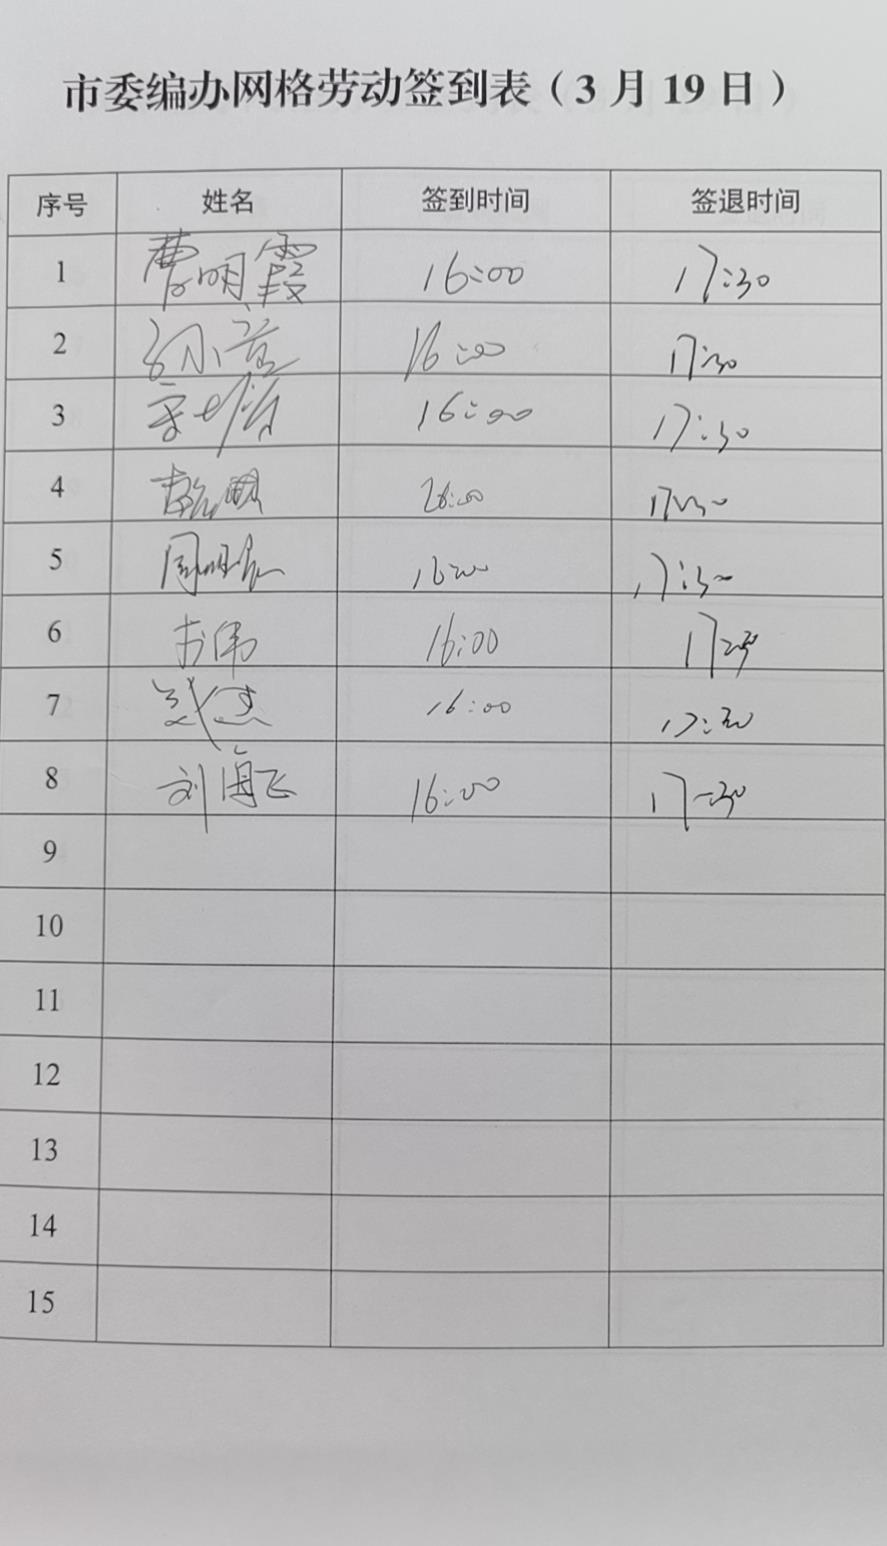 市委编办网格劳动签到表（3月19日）
序号 姓名 签到时间 签退时间
1 曹明霞 16:00 17:30
2 16:00 17:30
3 16:00 17:30
4 17:30
5 16:00 17:30
6 16:00 17:30
7 16:00 17:30
8 刘海飞 16:00 17:30
9
10
11
12
13
14
15